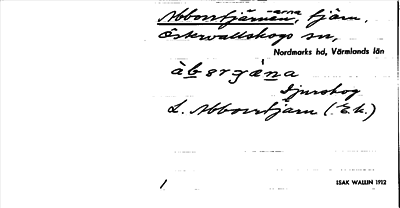 Abborrtjärnen, -arna, tjärn,
Östervallskogs sn,
Nordmarks hd, Värmlands län
Djurskog
L. Abborrtjärn (E.k.)
1 ISAK WALLIN 1912